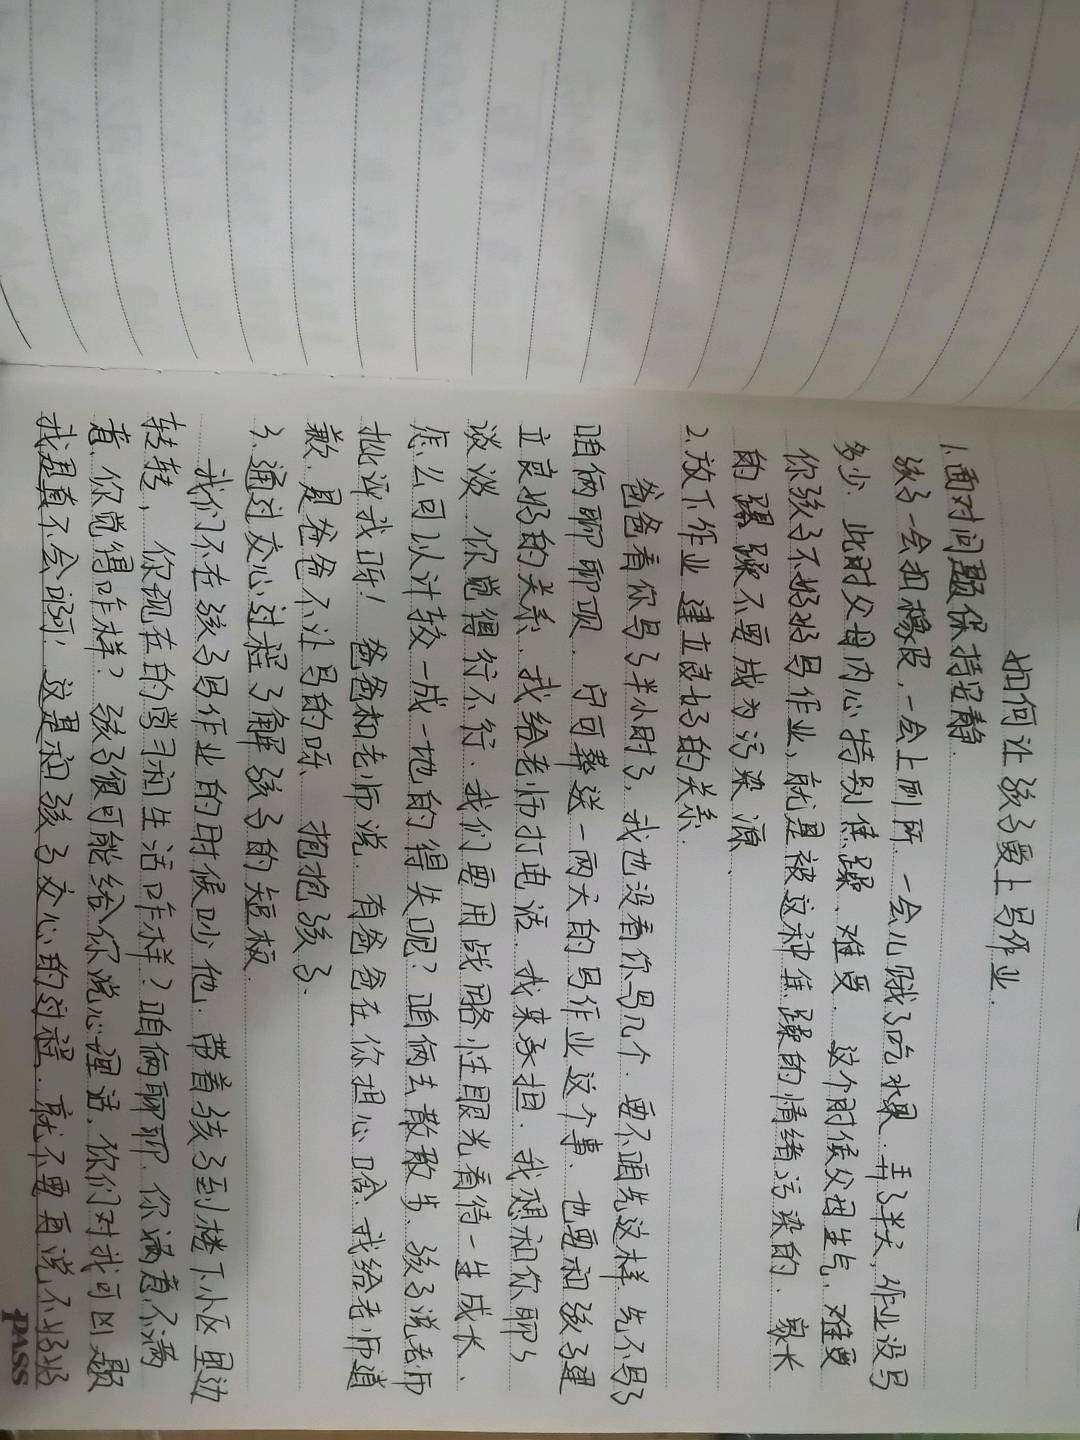 如何让孩子爱上写作业.
1.面对问题保持安静.
孩子一会扣橡皮.一会上厕所 一会儿饿了吃水果.弄了半天,作业没写
多少.此时父母内心特别焦躁、难受.这个时侯父母生气.难受
你孩子不好好写作业,就是被这种焦躁的情绪污染的.家长
的躁躁不要成为污染源、
2.放下作业 建立良好的关系.
爸爸看你写了半小时了,我也没看你写几个.要不咱先这样 先不写了
咱俩聊聊呗.宁可葬送一两天的写作业这个事.也要和孩子建
立良好的关系.我给老师打电话.我来承担.我想和你聊ㄅ
谈谈.你觉得行不行.我们要用战略性眼光看待一生成长、
怎么可以计较一成一地的得失呢?咱俩去散散步、孩子说老师
批评我呀!爸爸和老师说.有爸爸在你担心啥.我给老师道
歉.是爸爸不让写的呀、抱抱孩子.
3.通过交心过程了解孩子的短板.
我们不在孩子写作业的时候吵他.带着孩子到楼下小区里边
转转,你现在的学习和生活咋样?咱俩聊聊.你满意不满
意.你觉得咋样?孩子很可能给你说心理话.你们对我可凶.题
我是真不会啊!这是和孩子交心的过程.就不要再说不好好
PASS